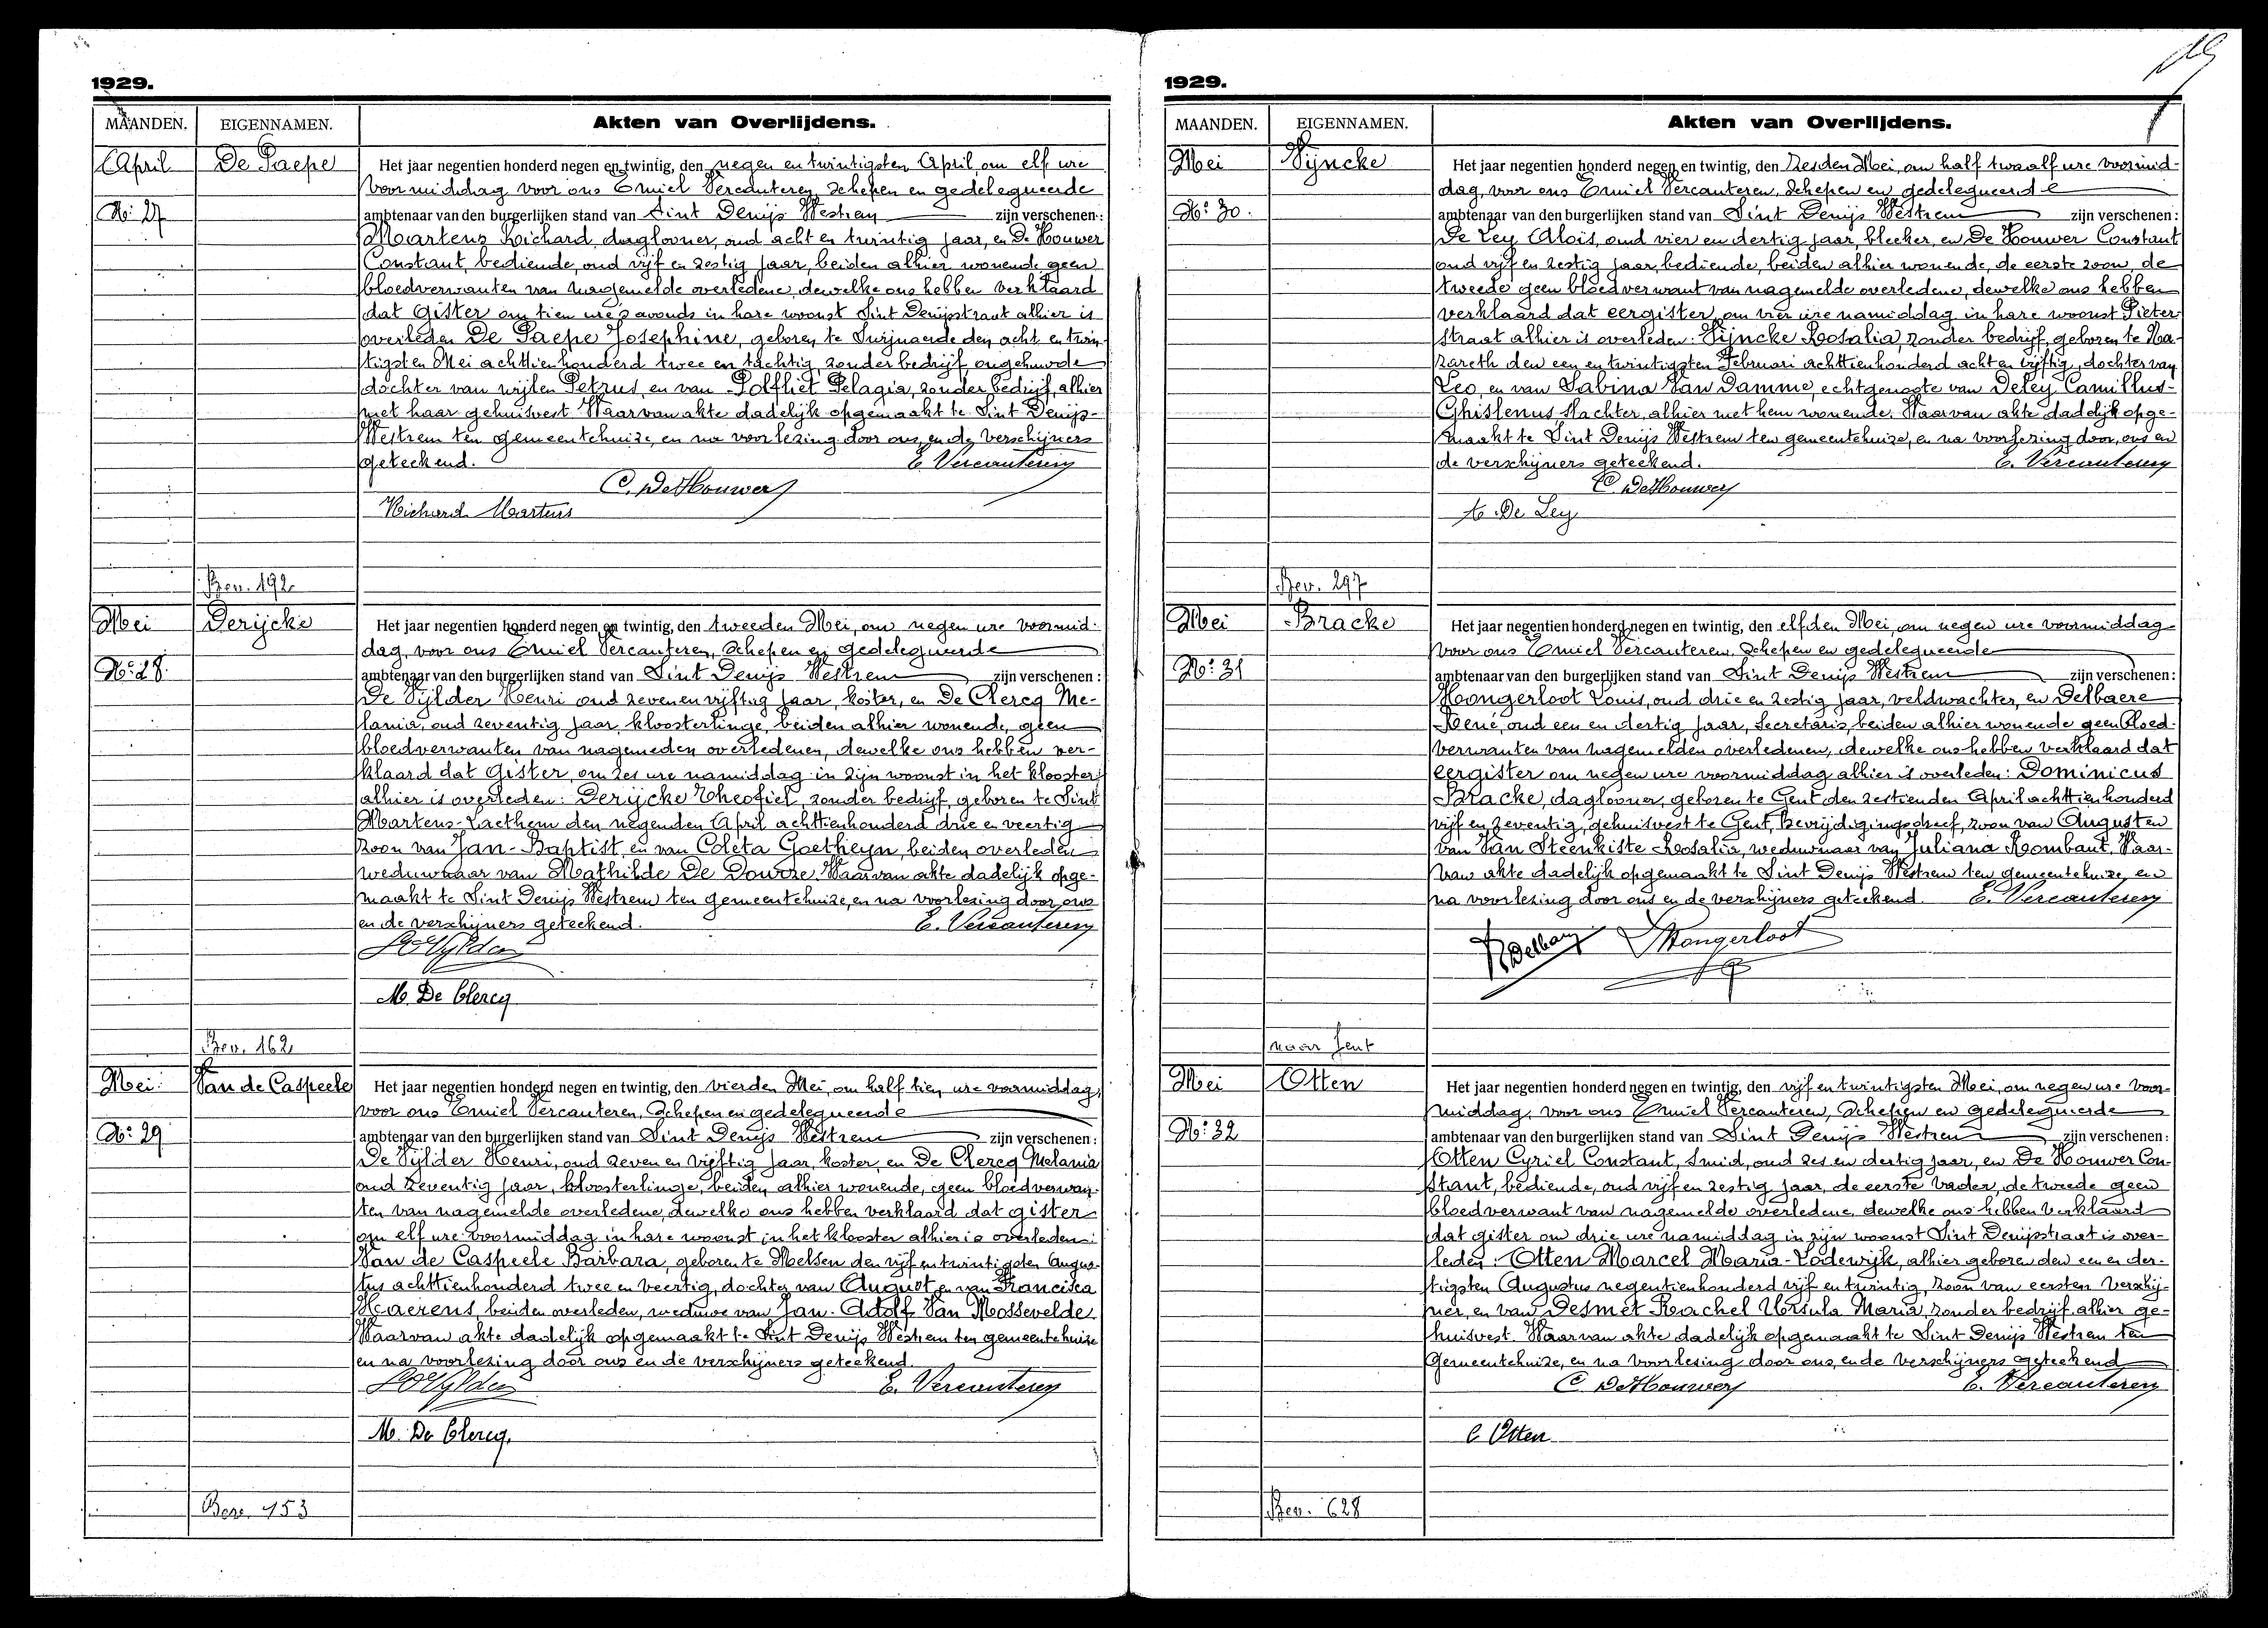 1929.
MAANDEN. EIGENNAMEN. Akten van Overlijdens.
April De Paepe Het jaar negentien honderd negen en twintig, den negen en twintigsten April, om elf ure
voormiddag voor ons Emiel Vercauteren, Schepen en gedelegueerde
No: 27 ambtenaar van den burgerlijken stand van Sint Denijs Westrem zijn verschenen:
Martens Richard, daglooner, oud acht en twintig jaar, en De Houwer
Constant, bediende, oud vijf en zestig jaar, beiden alhier wonende geen
bloedverwanten van nagemelde overledene, dewelke ons hebben verklaard
dat gister om tien ure 's avonds in hare woonst Sint Denijsstraat alhier is
overleden De Paepe Josephine, geboren te Swijnaerde den acht en twin-
tigsten Mei achttienhonderd twee en tachtig, zonder bedrijf, ongehuwde
dochter van wijlen Petrus, en van Polfliet Pelagia, zonder bedrijf, alhier
met haar gehuisvest. Waarvan akte dadelijk opgemaakt te Sint Denijs-
Westrem ten gemeentehuize, en na voorlezing door ons, en de verschijners
geteekend. E. Vercauteren
C. De Houwer
Richard Martens
Bev. 192
Mei Derijcke Het jaar negentien honderd negen en twintig, den tweeden Mei, om negen ure voormid-
dag, voor ons Emiel Vercauteren, Schepen en gedelegueerde
No: 28. ambtenaar van den burgerlijken stand van Sint Denijs Westrem zijn verschenen:
De Vijlder Henri oud zeven en vijftig jaar, koster, en De Clercq Me-
lania, oud zeventig jaar, kloosterlinge, beiden alhier wonende, geen
bloedverwanten van nagemeden overledenen, dewelke ons hebben ver-
klaard dat gister, om zes ure namiddag in zijn woonst in het klooster
alhier is overleden: Derijcke Theofiel, zonder bedrijf, geboren te Sint
Martens-Laethem den negenden April achttienhonderd drie en veertig
zoon van Jan-Baptist, en van Coleta Goetheyn, beiden overleden
weduwnaar van Mathilde De Dourze. Waarvan akte dadelijk opge-
maakt te Sint Denijs Westrem ten gemeentehuize, en na voorlezing door ons
en de verschijners geteekend. E. Vercauteren
H De Vylder
M. De Clercq
Bev. 162
Mei Van de Caspeele Het jaar negentien honderd negen en twintig, den vierden Mei, om half tien ure voormiddag,
voor ons Emiel Vercauteren, Schepen en gedelegueerde
No: 29 ambtenaar van den burgerlijken stand van Sint Denijs Westrem zijn verschenen:
De Vijlder Henri, oud zeven en vijftig jaar, koster, en De Clercq Melania
oud zeventig jaar, kloosterlinge, beiden alhier wonende, geen bloedverwan-
ten van nagemelde overledene, dewelke ons hebben verklaard dat gister
om elf ure voormiddag in hare woonst in het klooster alhier is overleden:
Van de Caspeele Barbara, geboren te Melsen den vijf en twintigsten Augus-
tus achttienhonderd twee en veertig, dochter van August en van Francisca
Haerens, beiden overleden, weduwe van Jan-Adolf Van Mossevelde.
Waarvan akte dadelijk opgemaakt te Sint Denijs Westrem ten gemeentehuize
en na voorlezing door ons en de verschijners geteekend.
H De Vylder E. Vercauteren
M. De Clercq.
Bev. 153
1929.
MAANDEN. EIGENNAMEN. Akten van Overlijdens.
Mei Vijncke Het jaar negentien honderd negen en twintig, den zesden Mei, om half twaalf ure voormid-
dag, voor ons Emiel Vercauteren, Schepen en gedelegueerde
No: 30. ambtenaar van den burgerlijken stand van Sint Denijs Westrem zijn verschenen:
De Ley Aloïs, oud vier en dertig jaar, bleeker, en De Houwer Constant
oud vijf en zestig jaar, bediende, beiden alhier wonende, de eerste zoon, de
tweede geen bloedverwant van nagemelde overledene, dewelke ons hebben
verklaard dat eergister, om vier ure namiddag in hare woonst Pieter
straat alhier is overleden: Vijncke Rosalia, zonder bedrijf, geboren te Na-
zareth den een en twintigsten Februari achttienhonderd acht en vijftig, dochter van
Leo, en van Sabina Van Damme, echtgenoote van Deley Camillus-
Ghislenus slachter, alhier met hem wonende. Waarvan akte dadelijk opge-
maakt te Sint Denijs Westrem ten gemeentehuize, en na voorlezing door ons en
de verschijners geteekend. E. Vercauteren
C. De Houwer
A. De Ley
Bev. 297
Mei Bracke Het jaar negentien honderd negen en twintig, den elfden Mei, om negen ure voormiddag
voor ons Emiel Vercauteren, Schepen en gedelegueerde
No: 31 ambtenaar van den burgerlijken stand van Sint Denijs Westrem zijn verschenen:
Hoongerloot Louis, oud drie en zestig jaar, veldwachter, en Delbaere
René, oud een en dertig jaar, Secretaris, beiden alhier wonende geen bloed-
verwanten van nagemelden overledenen, dewelke ons hebben verklaard dat
eergister om negen ure voormiddag alhier is overleden: Dominicus
Bracke, daglooner, geboren te Gent den zestienden April achttienhonderd
vijf en zeventig, gehuisvest te Gent, Bevrijdigingsdreef, zoon van August en
van Van Steenkiste Rosalia, weduwnaar van Juliana Rombaut. Waar-
van akte dadelijk opgemaakt te Sint Denijs Westrem ten gemeentehuize, en
na voorlezing door ons en de verschijners geteekend. E. Vercauteren
R Delbaere L Hongerloot
naar Gent
Mei Otten Het jaar negentien honderd negen en twintig, den vijf en twintigsten Mei, om negen ure voor-
middag, voor ons Emiel Vercauteren, Schepen en gedelegueerde
No: 32 ambtenaar van den burgerlijken stand van Sint Denijs Westrem zijn verschenen:
Otten Cyriel Constant, smid, oud zes en dertig jaar, en De Houwer Con-
stant, bediende, oud vijf en zestig jaar, de eerste vader, de tweede geen
bloedverwant van nagemelde overledene, dewelke ons hebben verklaard
dat gister om drie ure namiddag in zijn woonst Sint Denijsstraat is over-
leden: Otten Marcel Maria-Lodewijk, alhier geboren den een en der-
tigsten Augustus negentienhonderd vijf en twintig, zoon van eersten verschij-
ner, en van Desmet Rachel Ursula Maria, zonder bedrijf, alhier ge-
huisvest. Waarvan akte dadelijk opgemaakt te Sint Denijs Westrem ten
Gemeentehuize, en na voorlezing door ons, en de verschijners geteekend
C. De Houwer E. Vercauteren
C Otten
Bev. 628